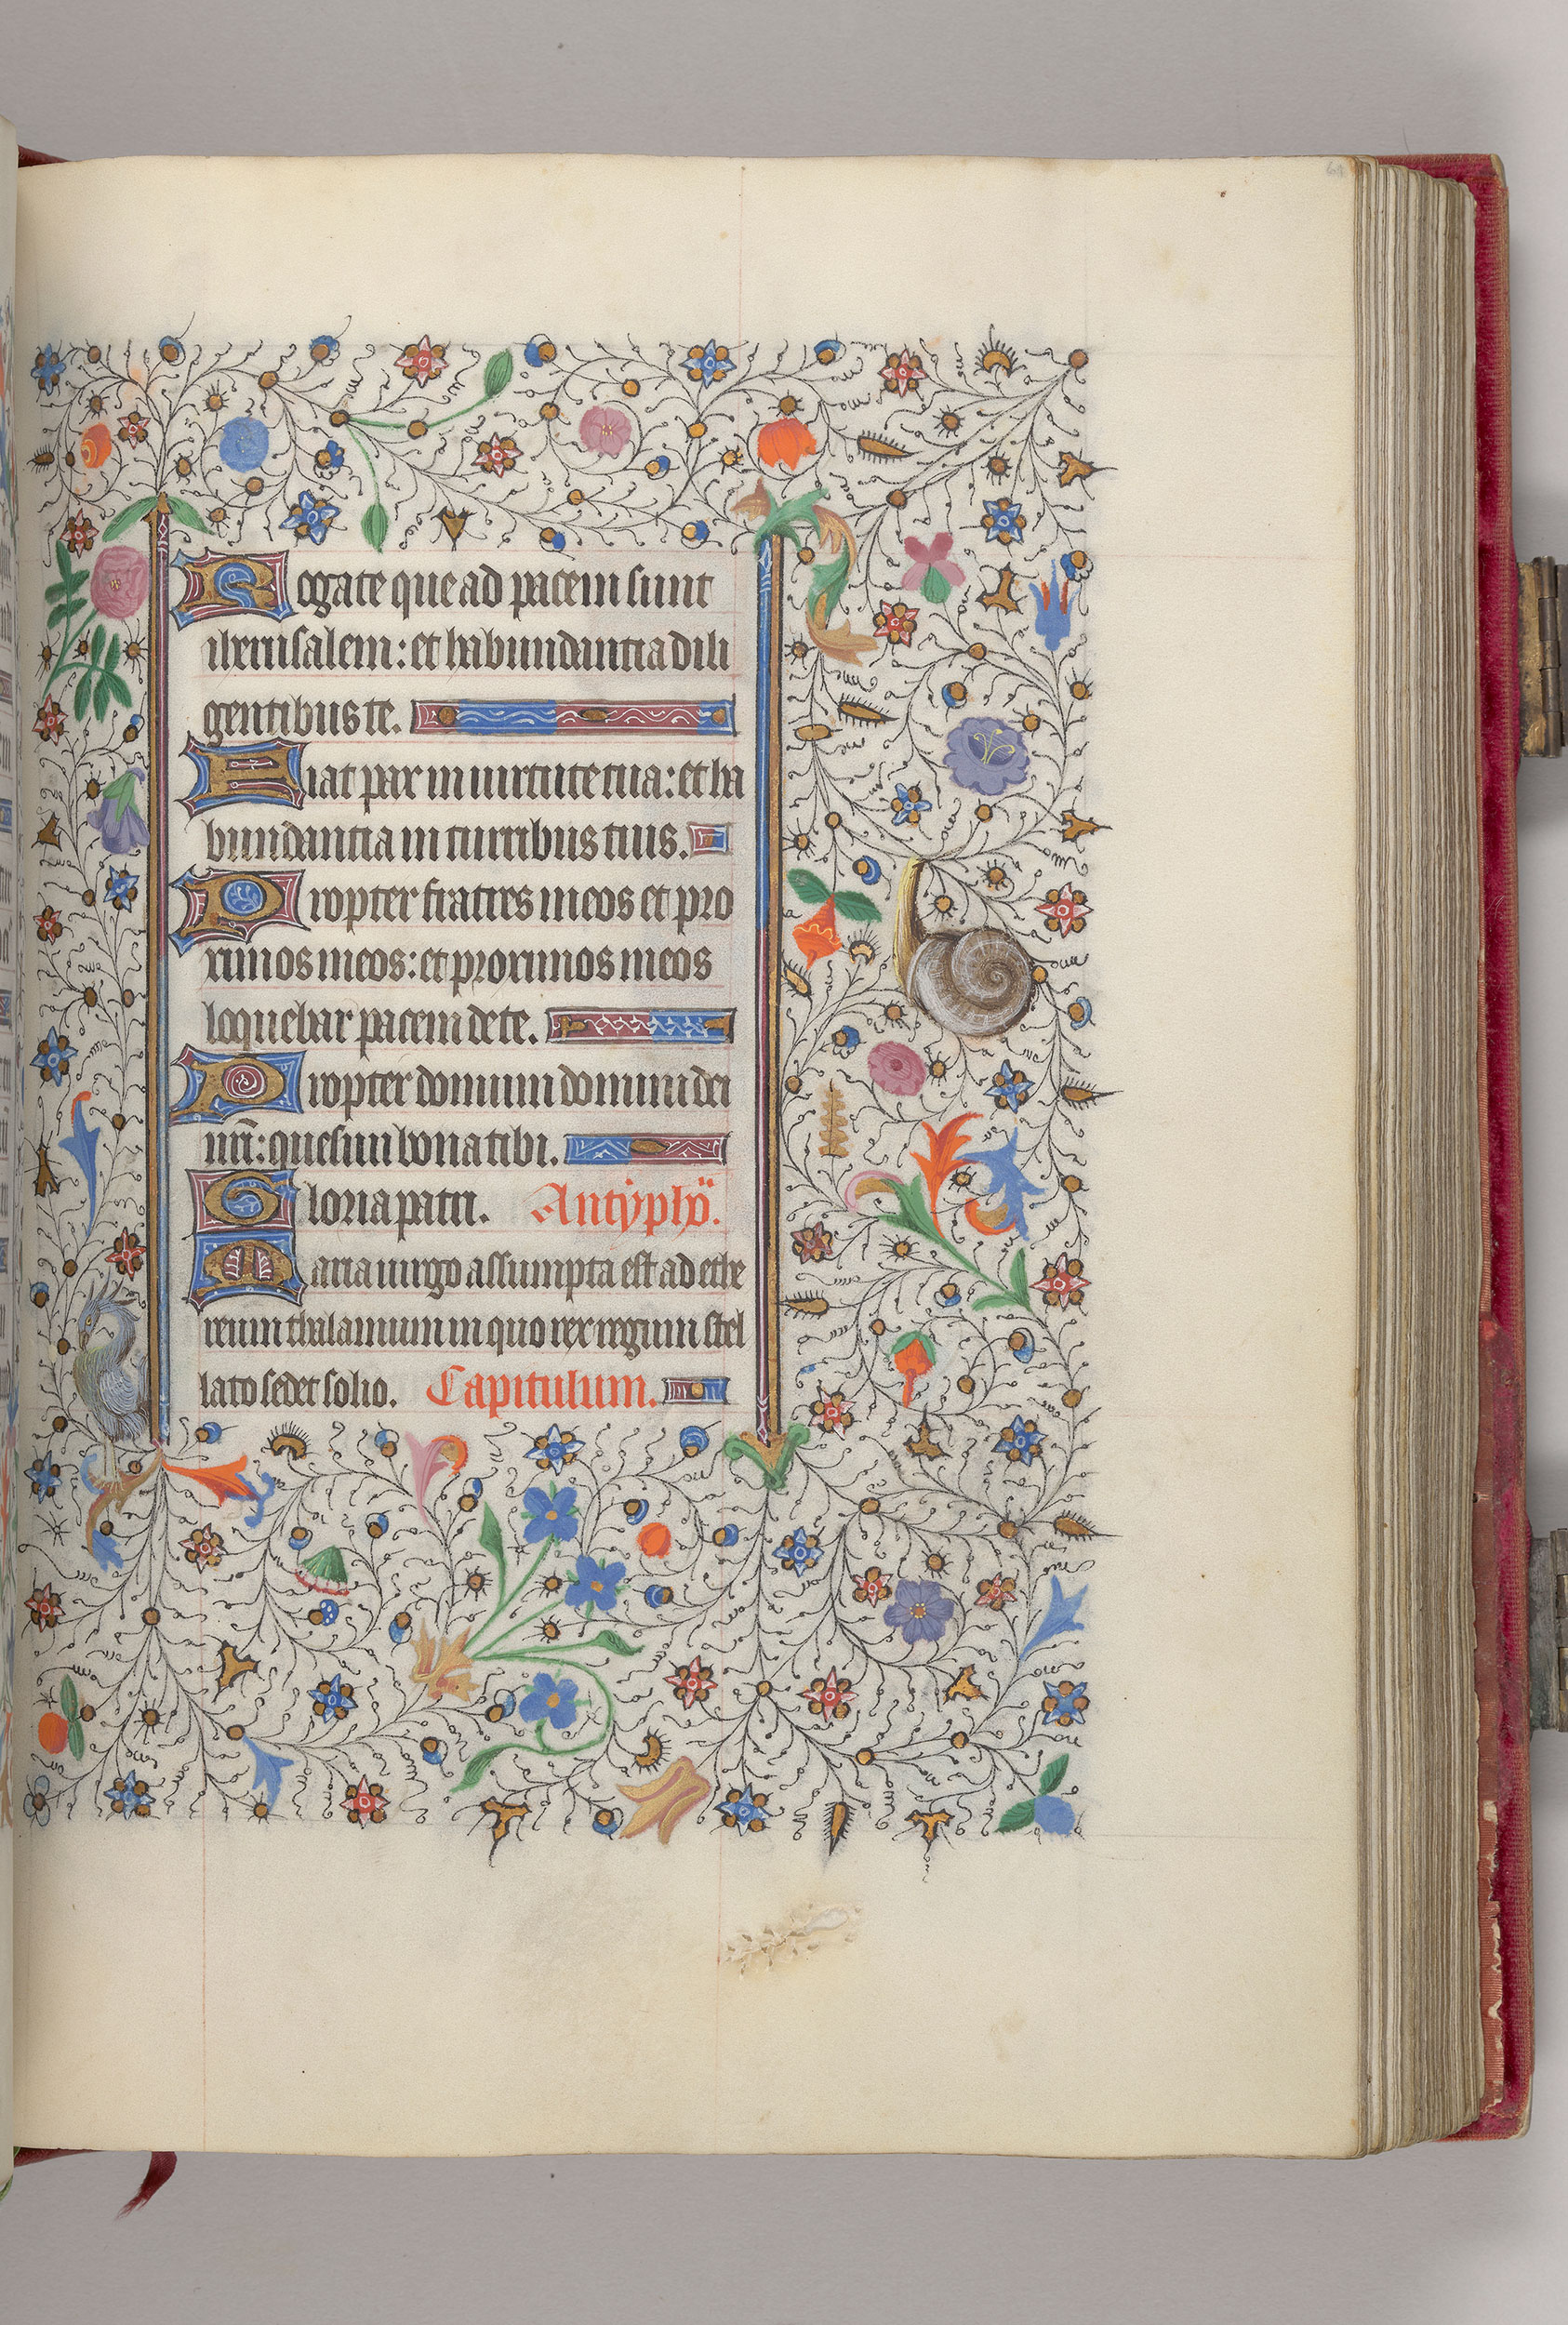 Rogate que ad pacem sunt
iherusalem: et habundantia dili
gentibus te.
Fiat pax in uirtute tua: et ha
bundantia in turribus tuis.
Propter fratres meos et pro
ximos meos: et proximos meos
loquebar pacem de te.
Propter domum domini dei
nr̄i: quesiui bona tibi.
Gloria patri. Antyph̄.
Maria uirgo assumpta est ad ethe
reum thalamum in quo rex regum stel
lato sedet solio. Capitulum.